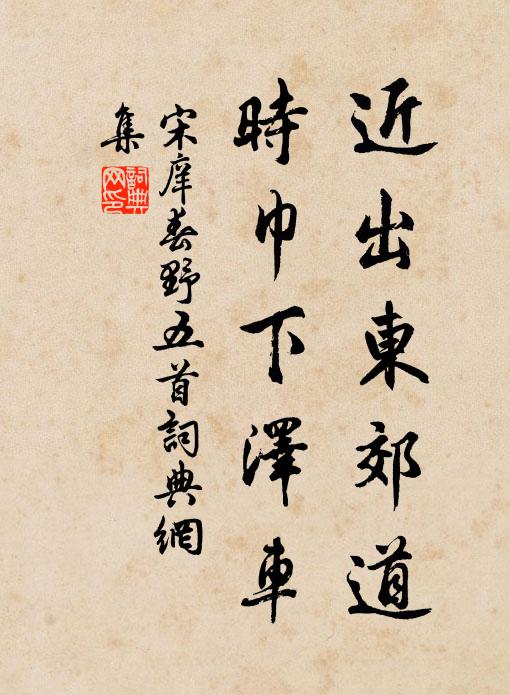 近出東郊道
時巾下澤車
宋庠春野五首詞典網
集
詞典
网印